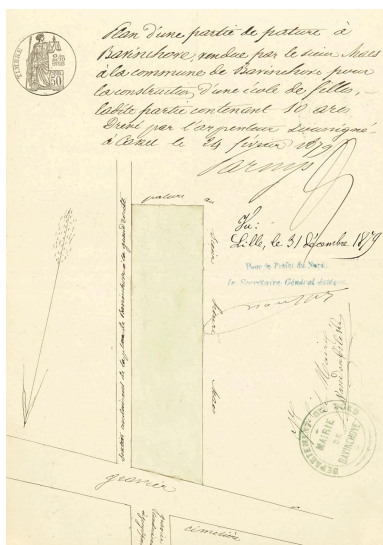 TIMBRE
50
Plan d'une partie de pature à
Bavinchove, vendue par le sieur Maes
à la commune de Bavinchove pour
la construction d'une école de filles, —
ladite partie contenant 10 ares
Dressé par l'arpenteur soussigné
à Cassel le 24 février 1879
pature au
sieur Maes
sentier conduisant de la place de Bavinchove à la grand'route
Vu:
Lille, le 31 Décembre 1879
Pour le Préfet du Nord
le Secrétaire Général délégué
Le Maire
DEPARTEMENT DU NORD
MAIRIE
DE
BAVINCHOVE
gravier
cimetière